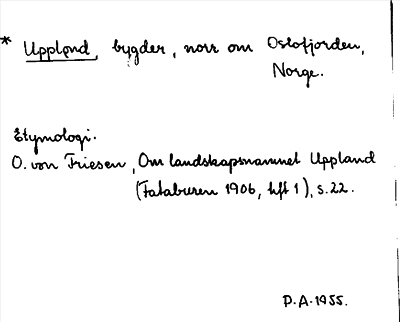 * Upplǫnd, bygder, norr om Oslofjorden,
Norge.
Etymologi.
O. von Friesen, Om landskapsnamnet Uppland
(Fataburen 1906, hft 1), s. 22.
P.A. 1955.